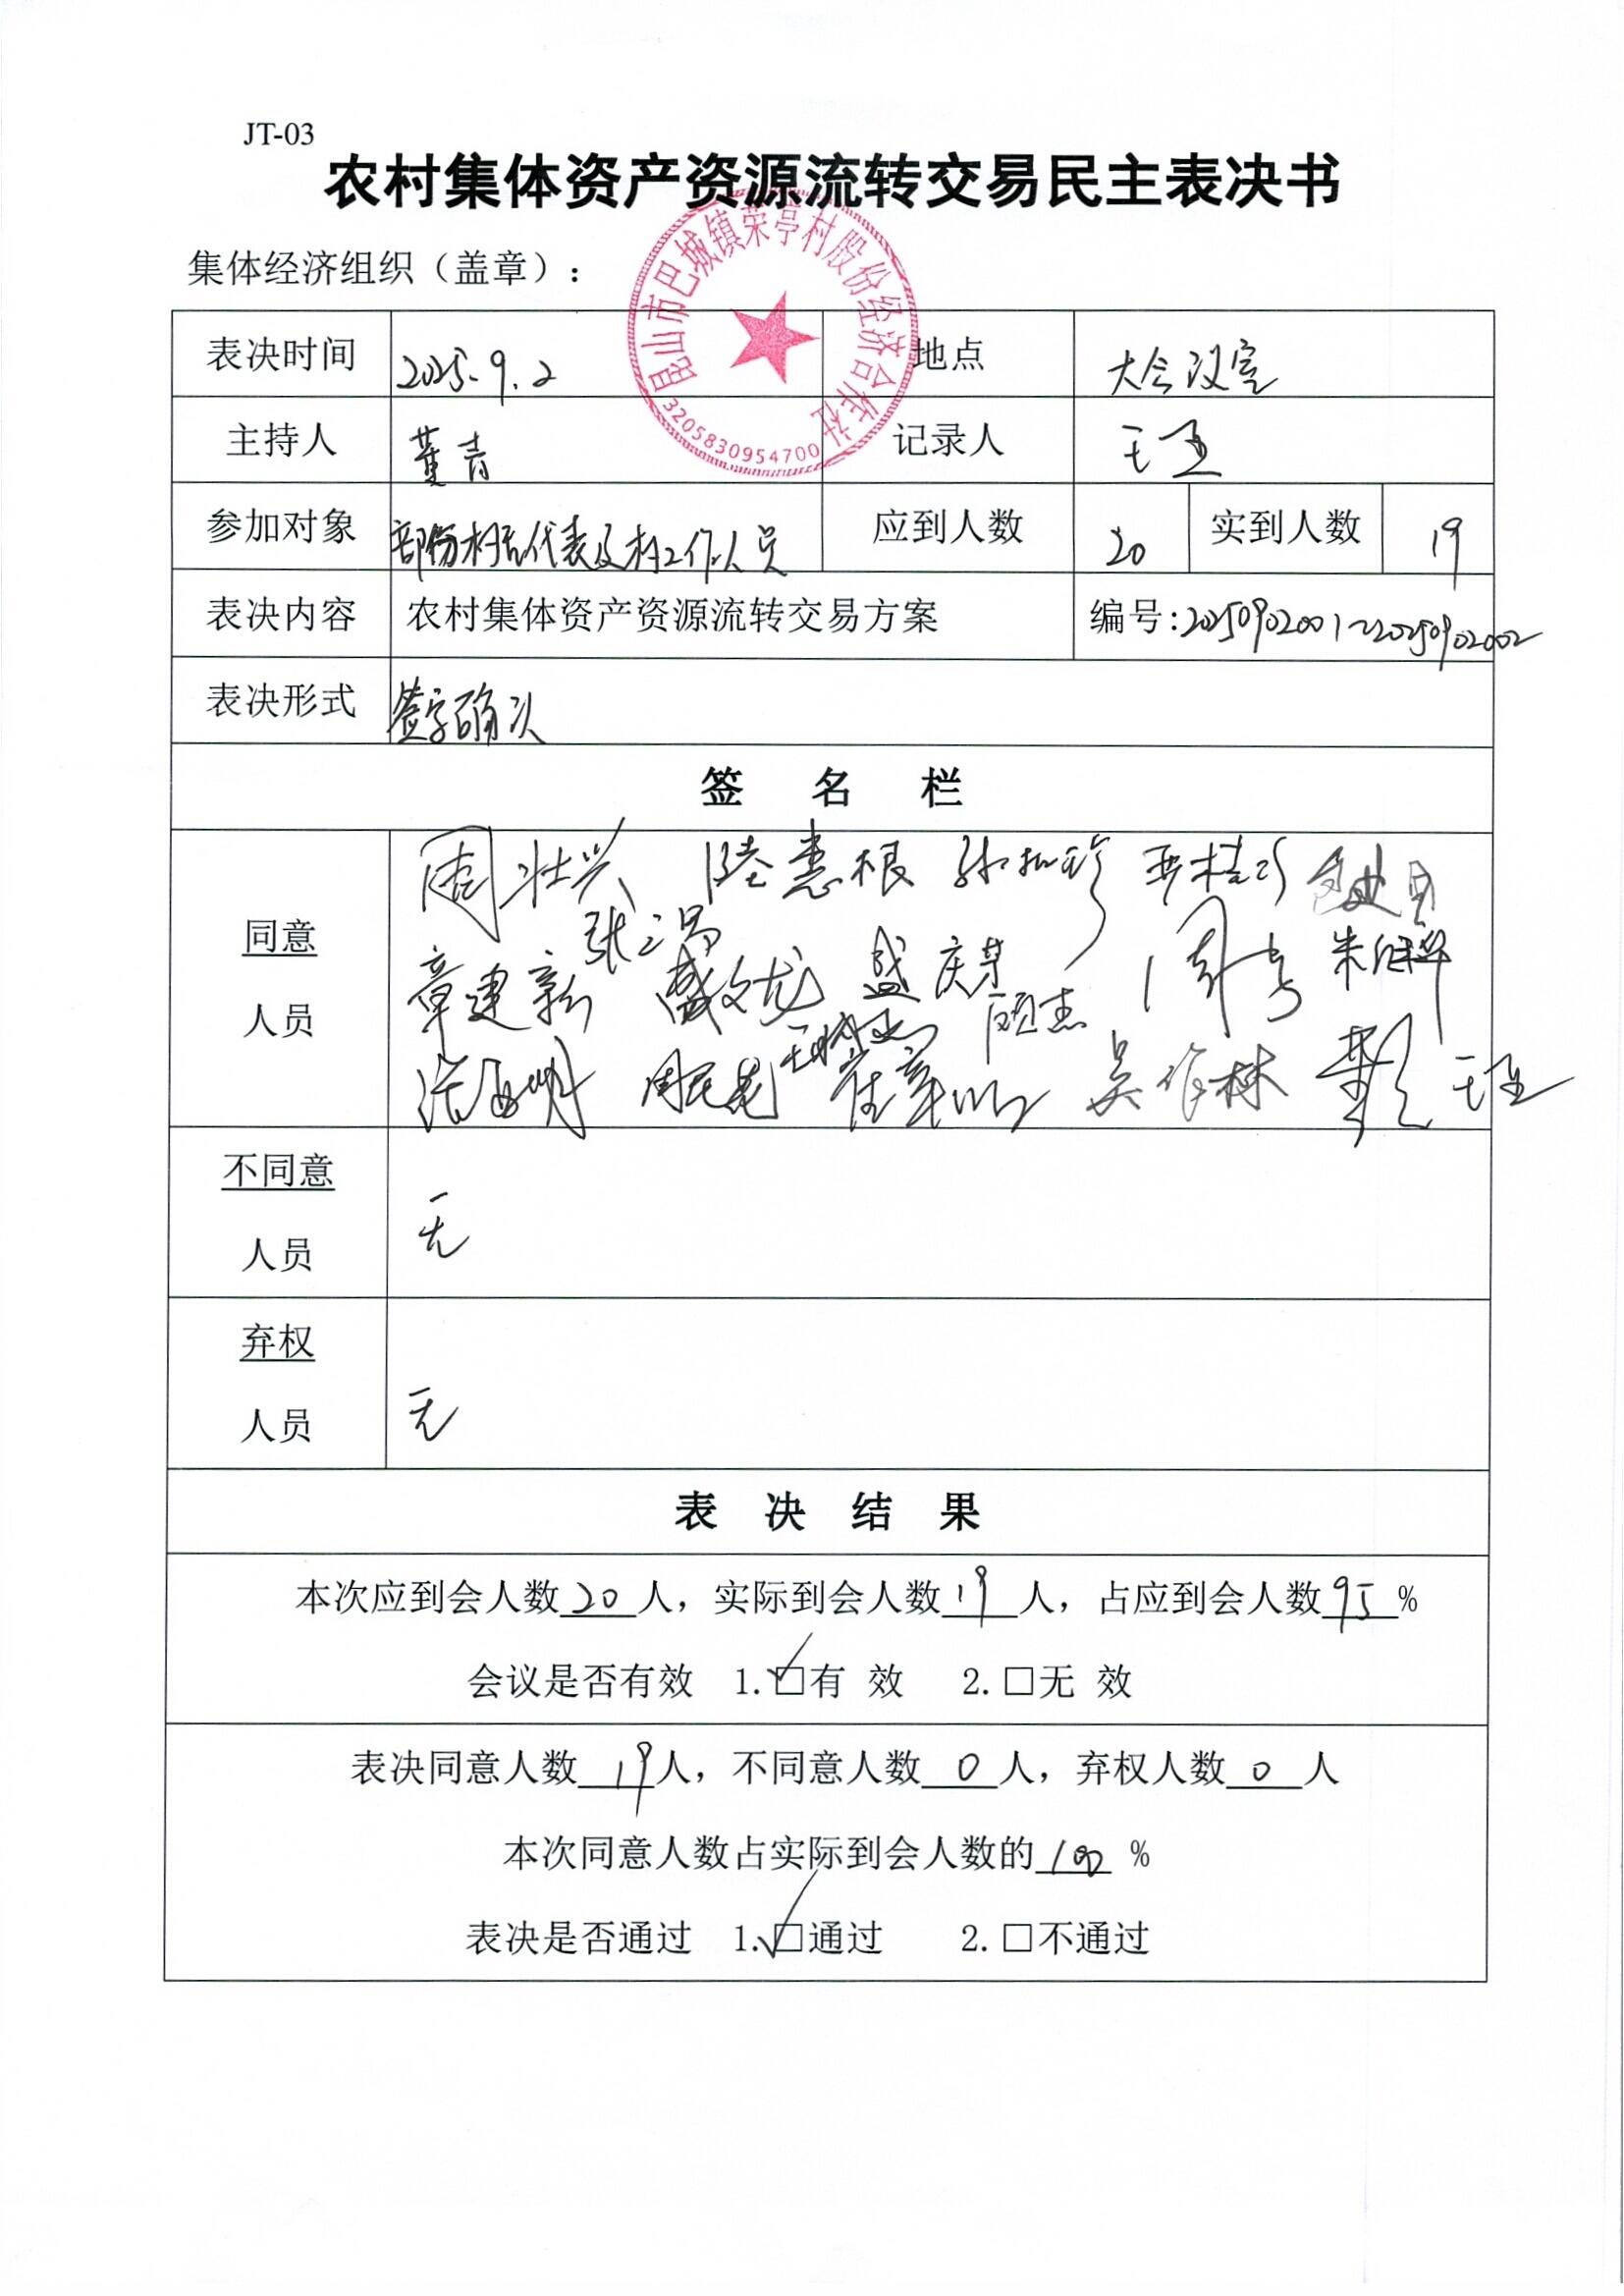 JT-03
农村集体资产资源流转交易民主表决书
集体经济组织（盖章）：
昆山市巴城镇荣亭村股份经济合作社
3205830954700
表决时间 2025.9.2 地点 大会议室
主持人 董青 记录人 王
参加对象 部份村民代表及村工作人员 应到人数 20 实到人数 19
表决内容 农村集体资产资源流转交易方案 编号:20250902001~20250902002
表决形式 签字确认
签 名 栏
同意
人员
周壮兴 陆惠根
章建新 盛文龙 盛庆荣 顾杰
吴 林
不同意
人员
无
弃权
人员
无
表 决 结 果
本次应到会人数20人，实际到会人数19人，占应到会人数95%
会议是否有效 1.☑有 效 2.□无 效
表决同意人数19人，不同意人数0人，弃权人数0人
本次同意人数占实际到会人数的100 %
表决是否通过 1.☑通过 2.□不通过